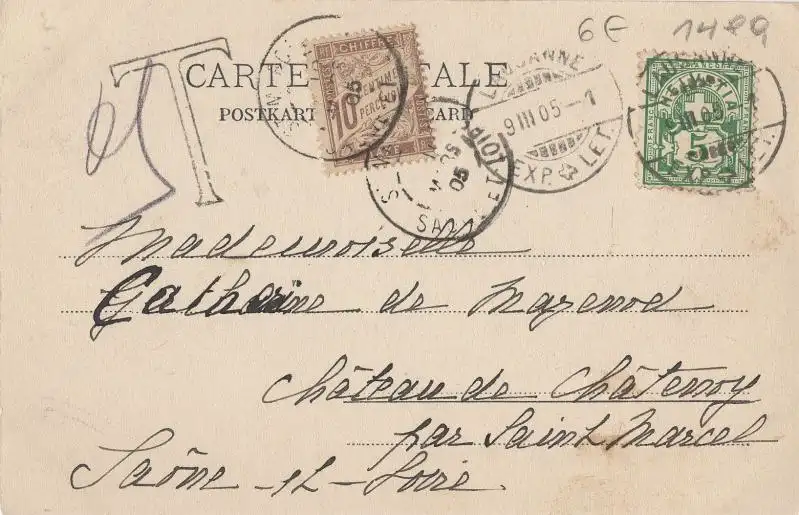 6€ 1489
CARTE POSTALE
POSTKART CARD
T
5
CHIFFRE
10 CENTIMES
PERCEVOIR
05
LAUSANNE
9 III 05 - 1
EXP. LET.
HELVETIA
5
EXP. LET.
05
Mademoiselle
Catherine de Mazenod
Château de Châtenoy
par Saint Marcel
Saône-et-Loire